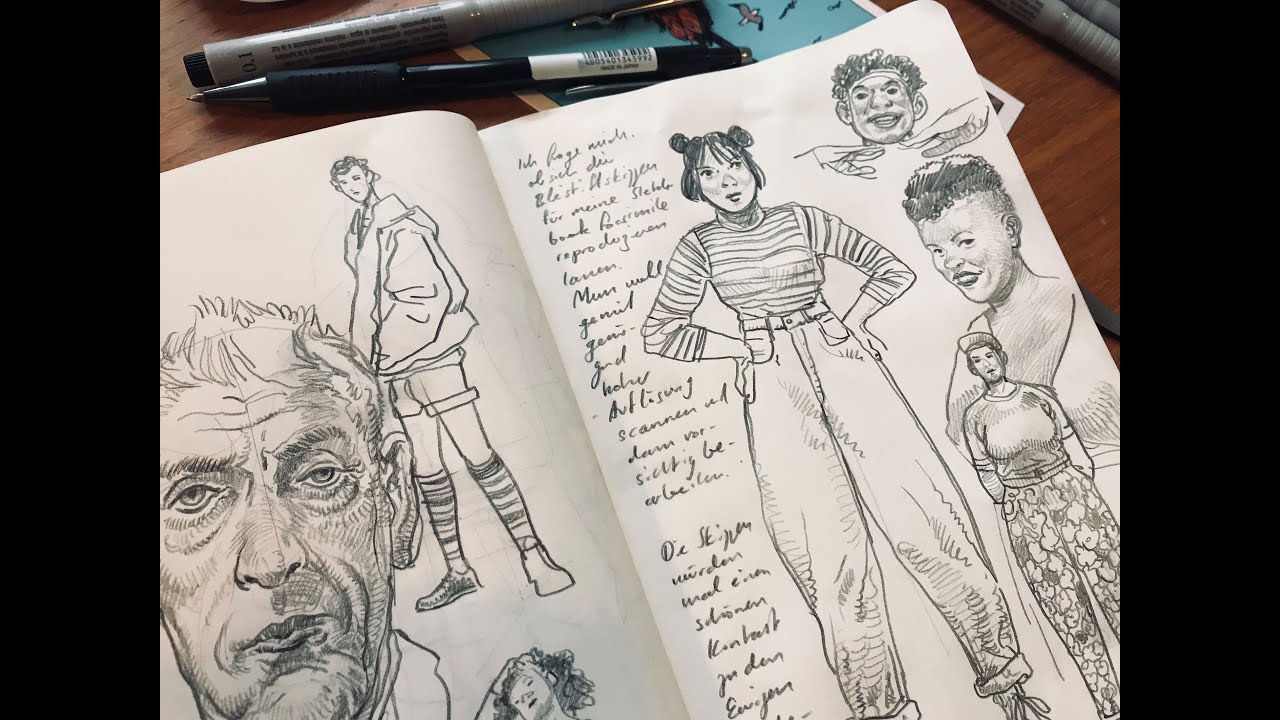 0.1
4005401345992
Ich frage mich,
ob sich die
Bleistiftskizzen
für meine Sketch-
book Facsimile
reproduzieren
lassen.
Man muß
genü-
gend
hoher
Auflösung
scannen und
dann vor-
sichtig be-
arbeiten.
Die Skizzen
würden
mal einen
schönen
Kontrast
zu den
Ewigen